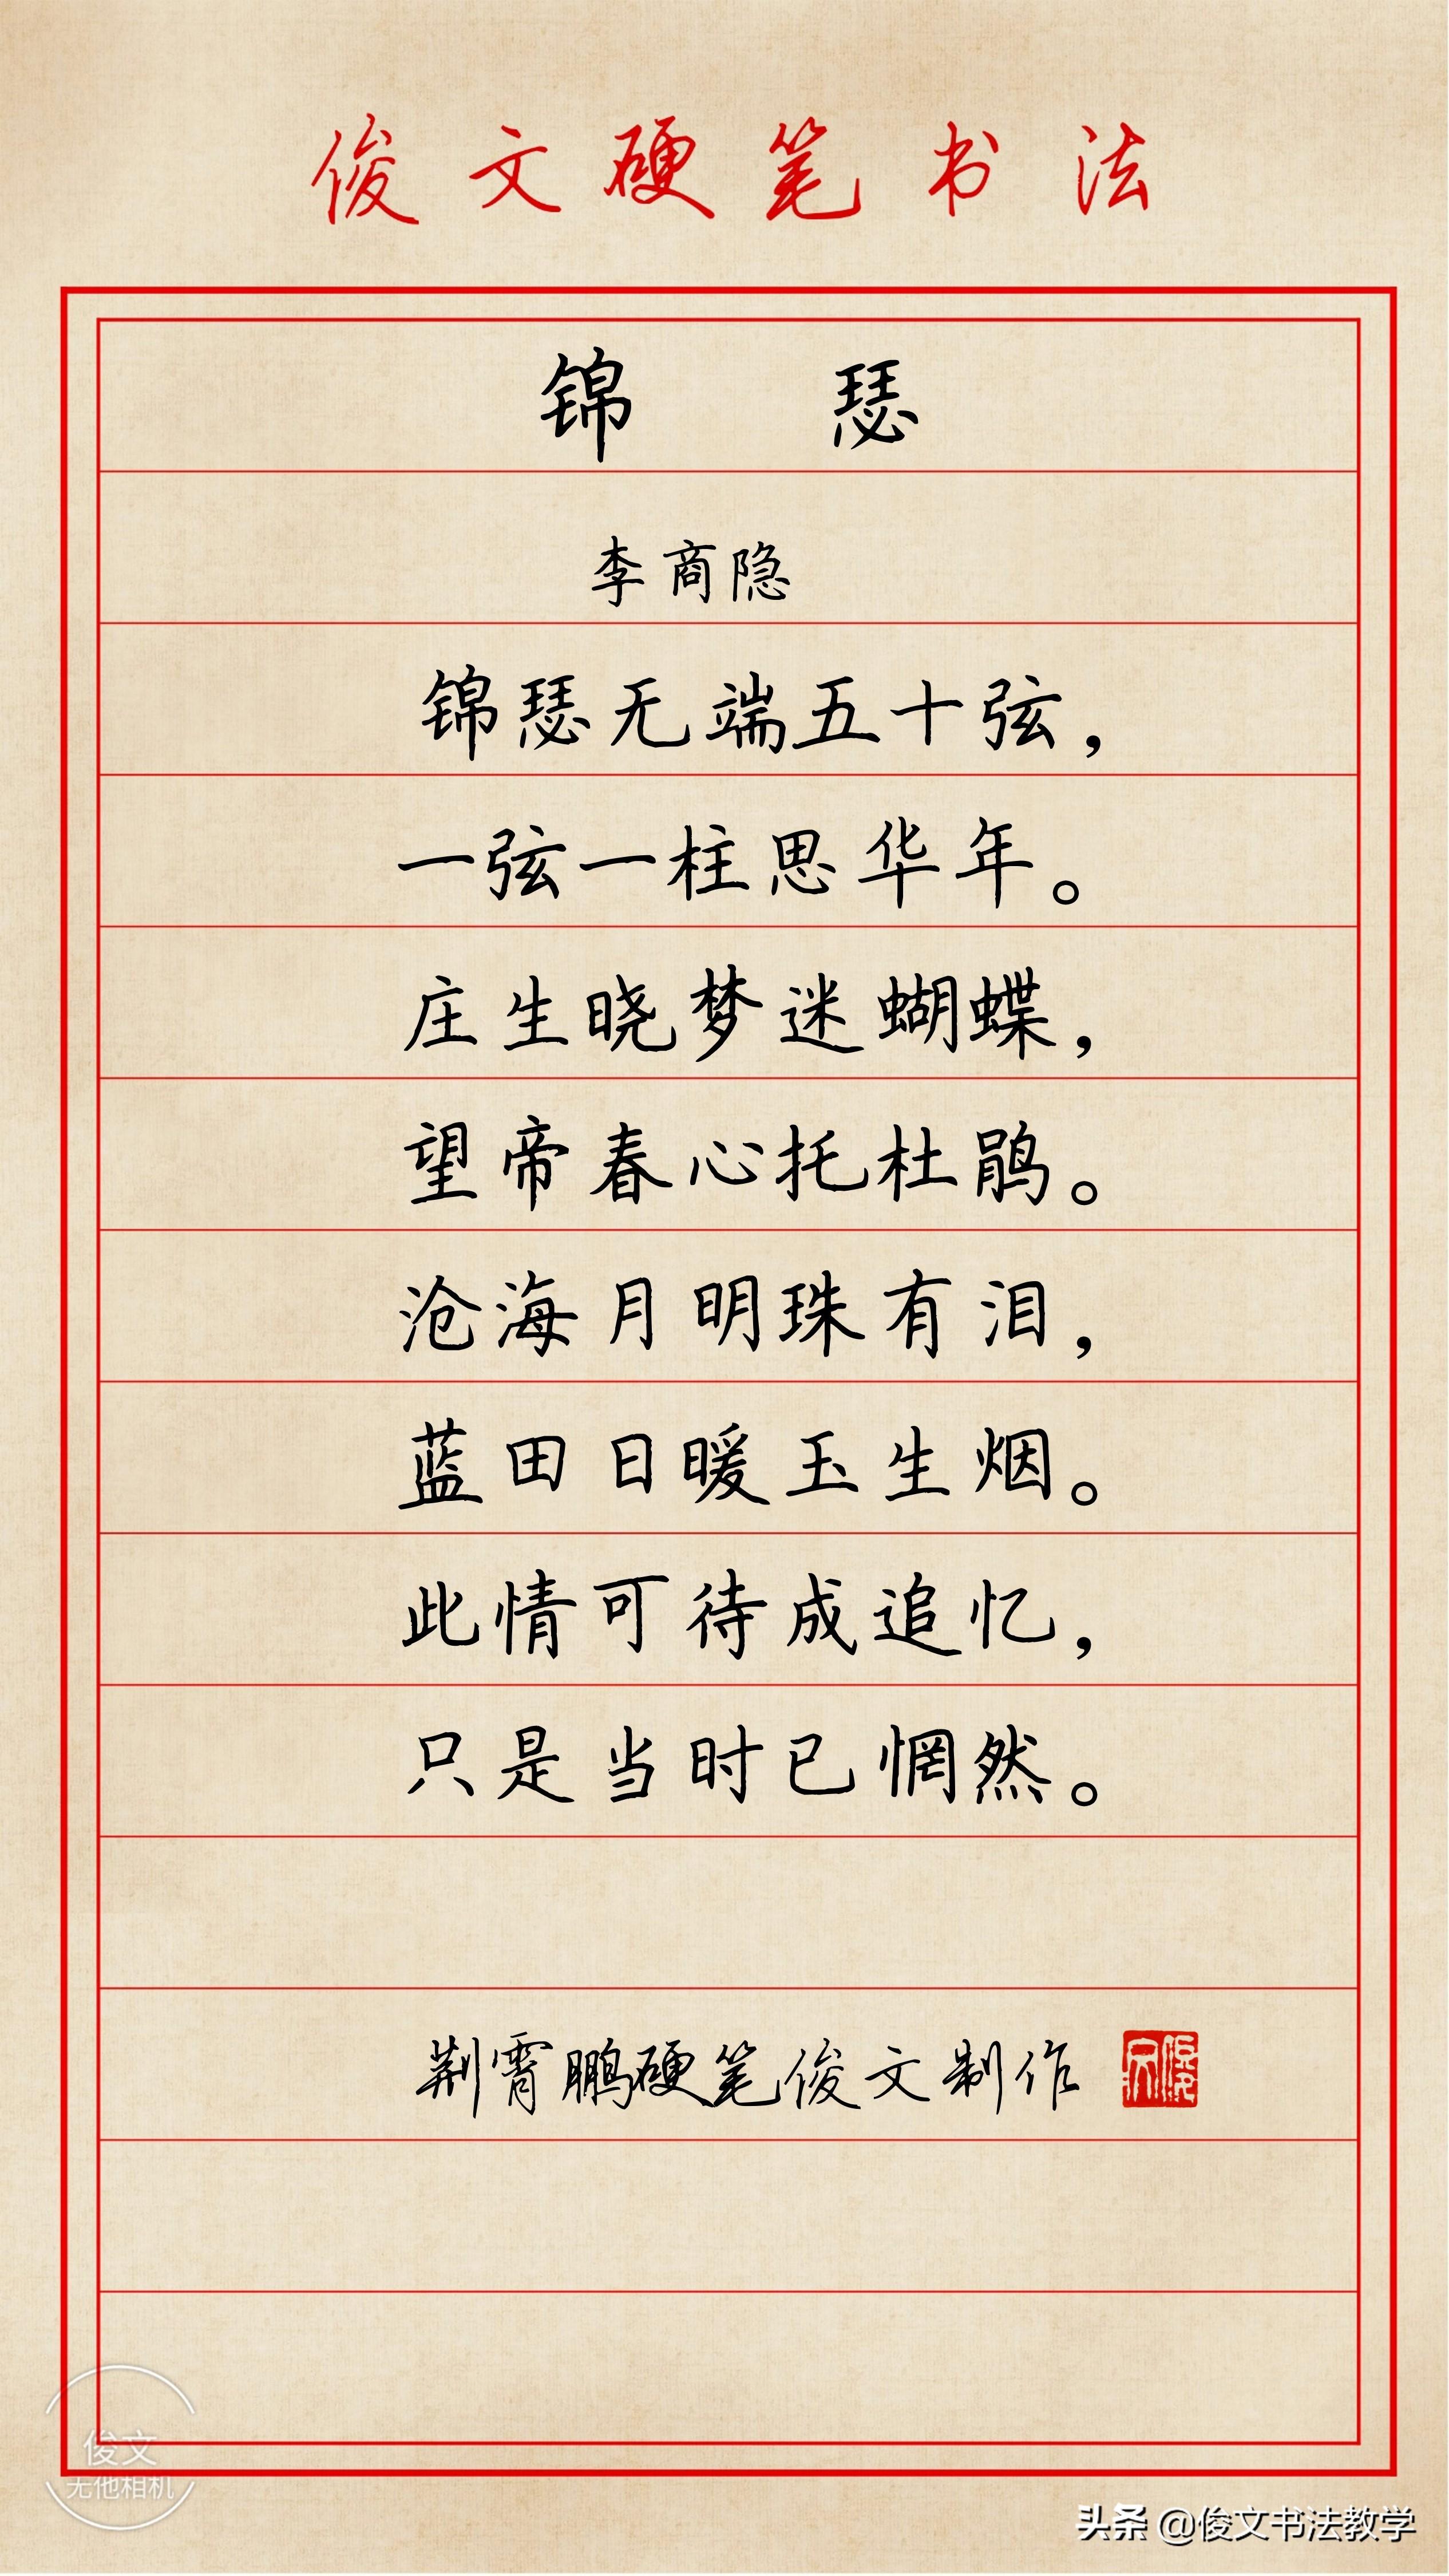 俊文硬笔书法
锦瑟
李商隐
锦瑟无端五十弦，
一弦一柱思华年。
庄生晓梦迷蝴蝶，
望帝春心托杜鹃。
沧海月明珠有泪，
蓝田日暖玉生烟。
此情可待成追忆，
只是当时已惘然。
荆霄鹏硬笔俊文制作
俊文
俊文
无他相机
头条 @俊文书法教学